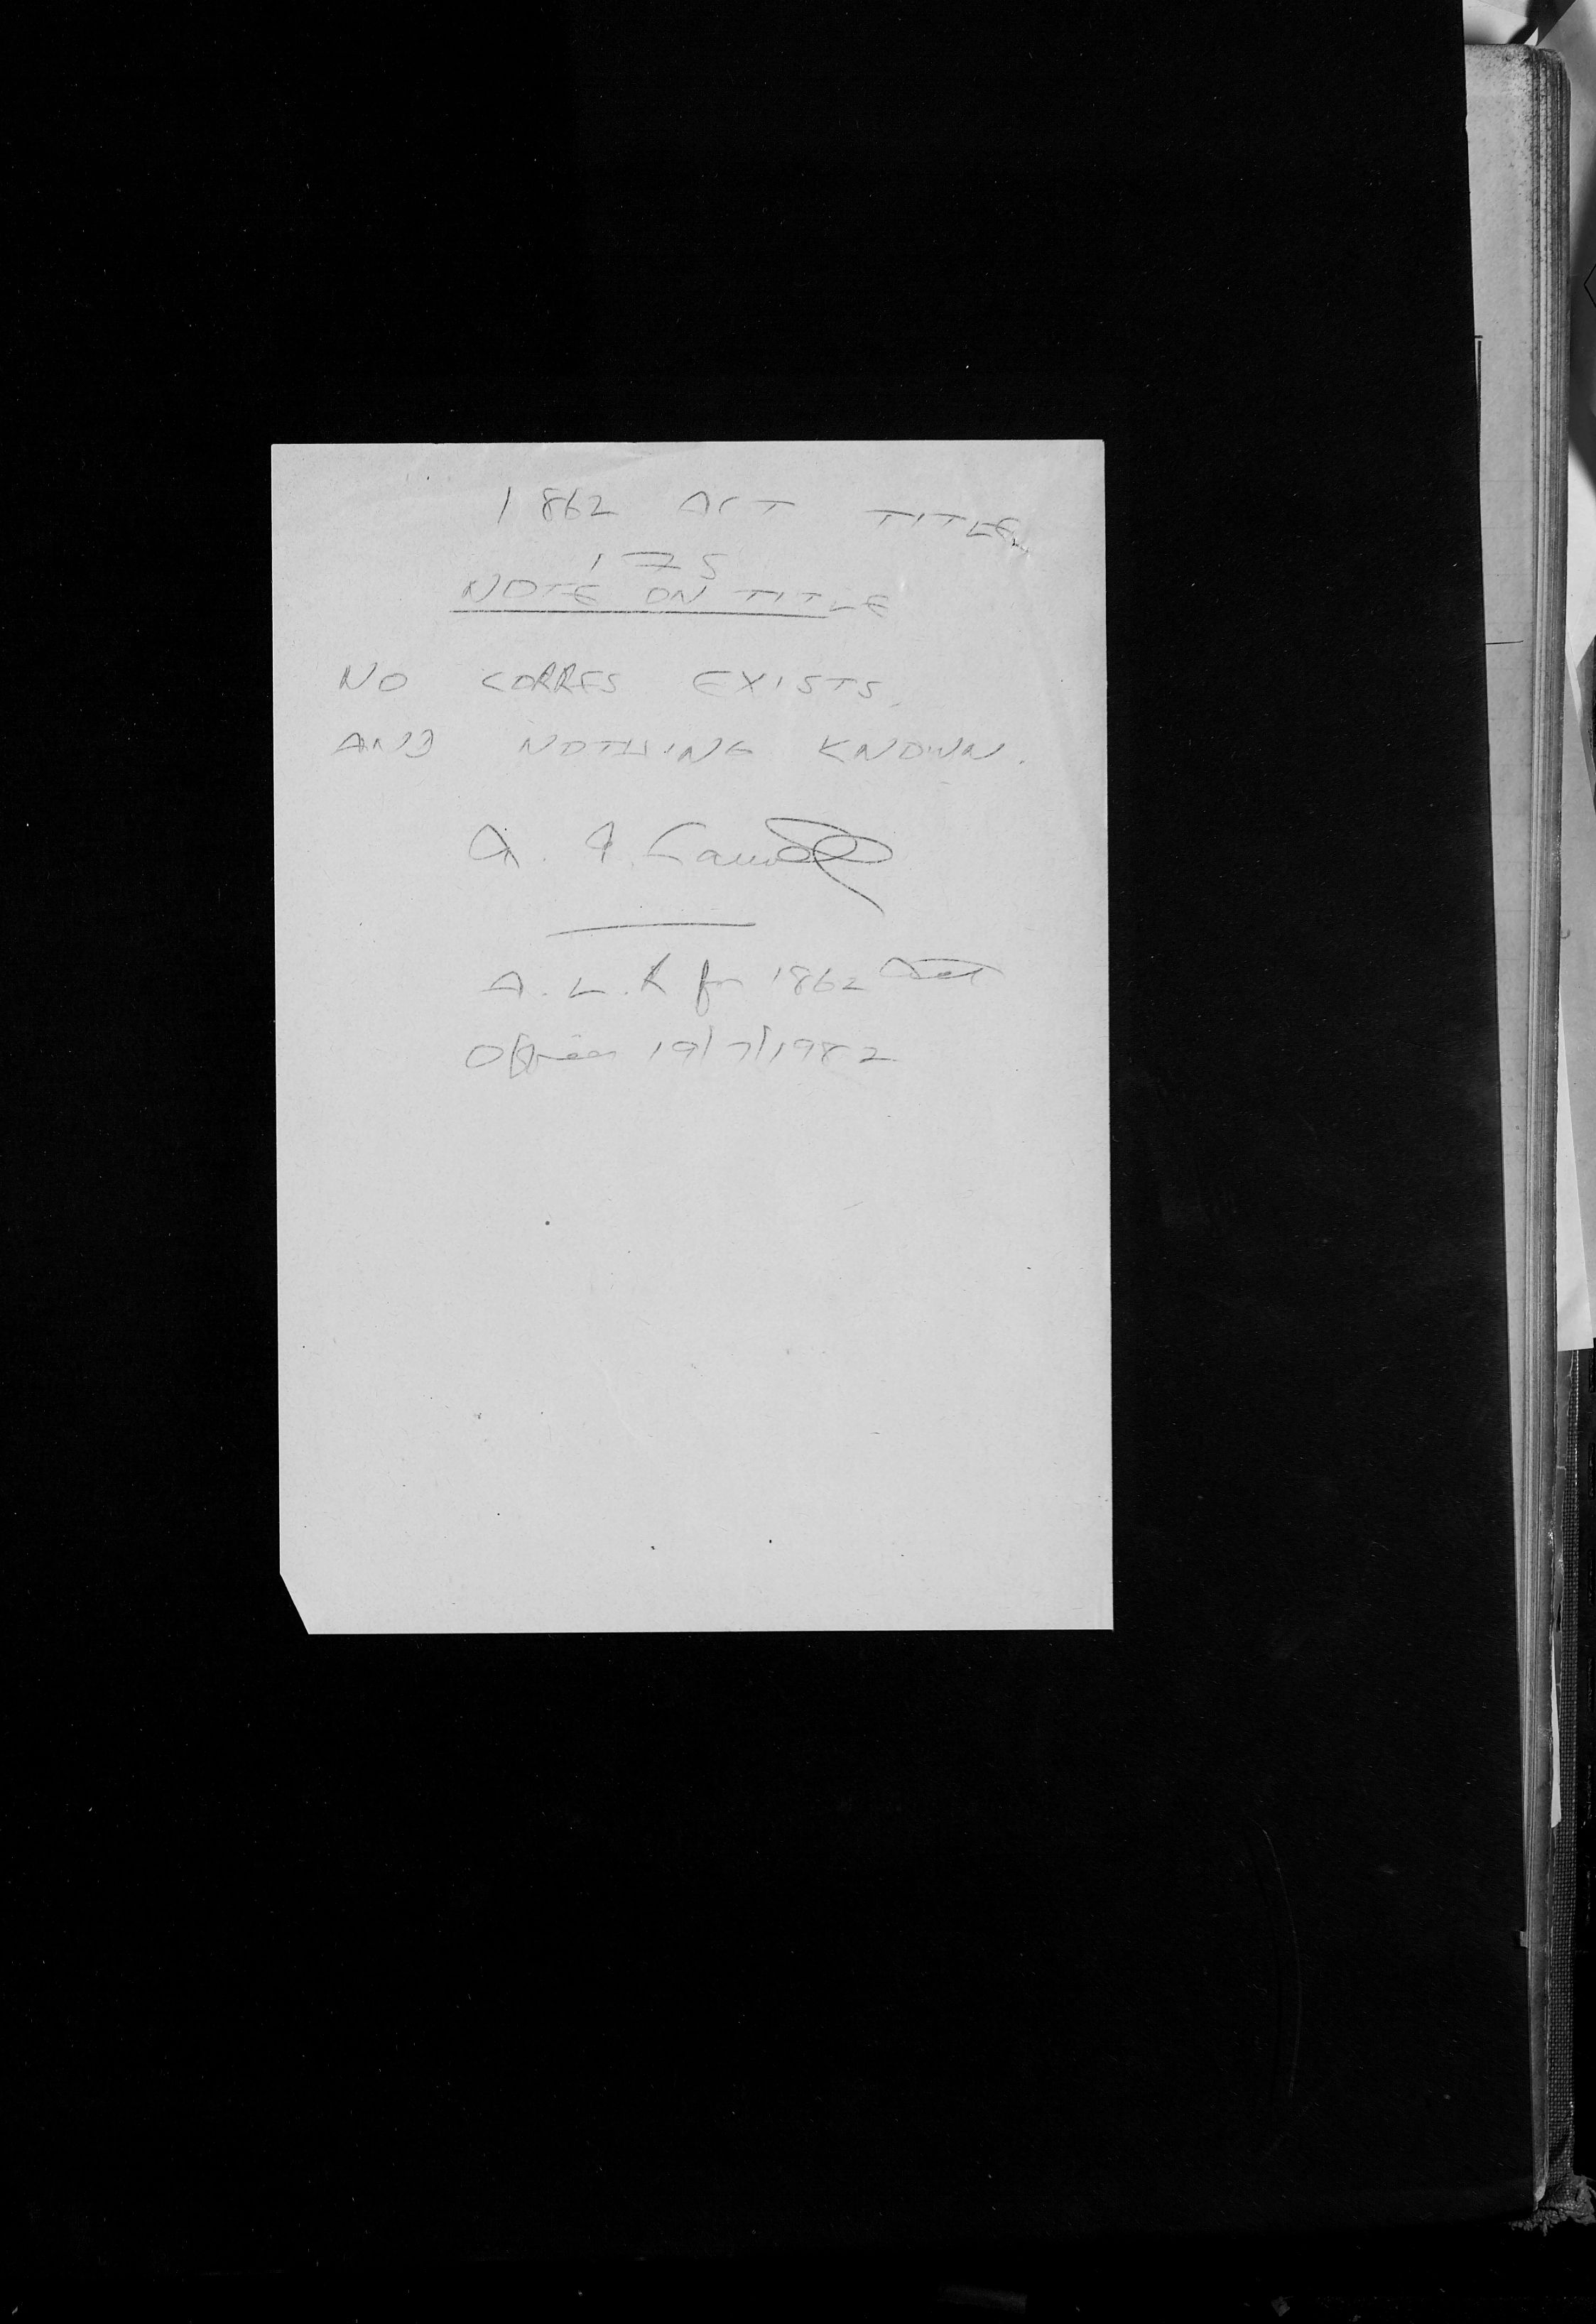 1862 ACT TITLE
175
NOTE ON TITLE
NO CORRES EXISTS,
AND NOTHING KNOWN.
A. L. R for 1862 Act
Offices 19/7/1982